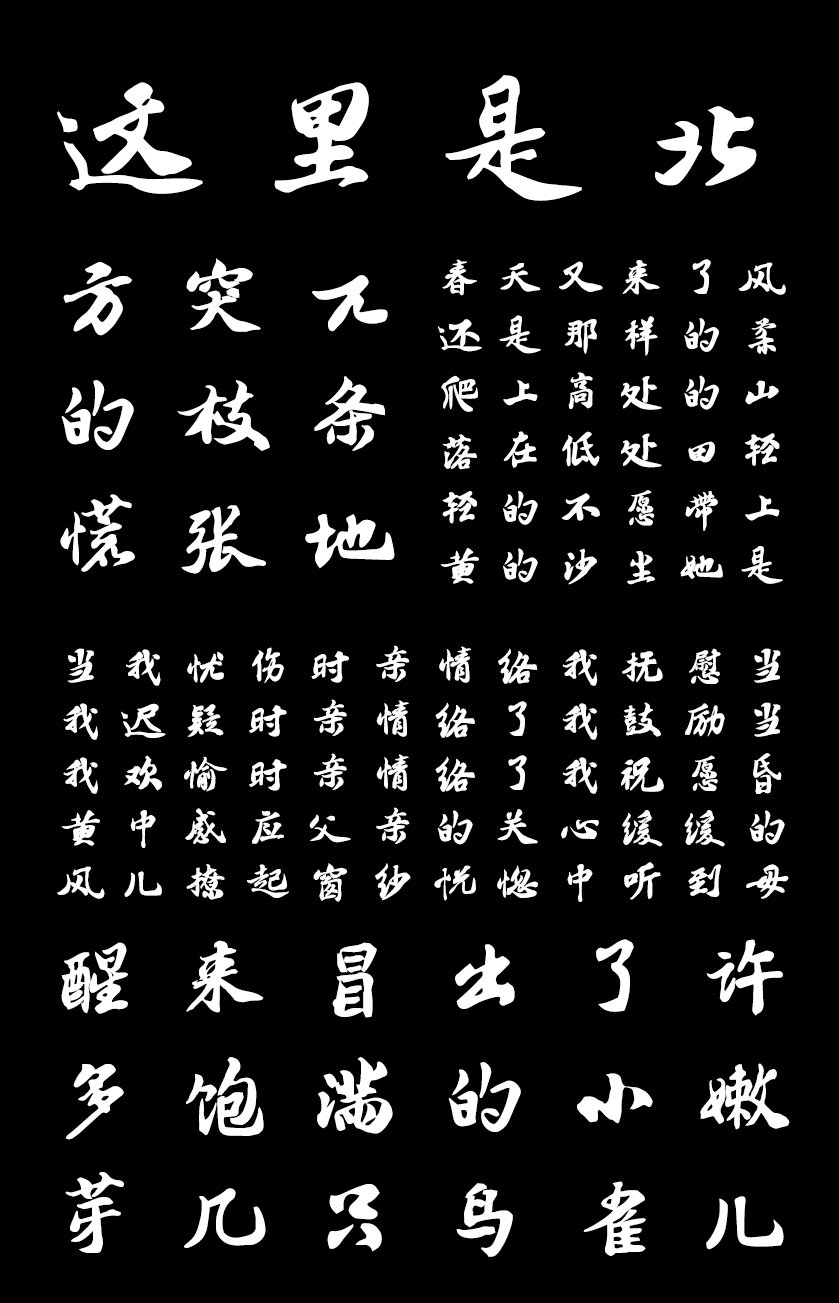 这里是北
方突兀
的枝条
慌张地
春天又来了风
还是那样的柔
爬上高处的山
落在低处田轻
轻的不愿带上
黄的沙尘她是
当我忧伤时亲情络我抚慰当
我迟疑时亲情络了我鼓励当
我欢愉时亲情络了我祝愿昏
黄中感应父亲的关心缓缓的
风儿撩起窗纱恍惚中听到母
醒来冒出了许
多饱满的小嫩
芽几只鸟雀儿